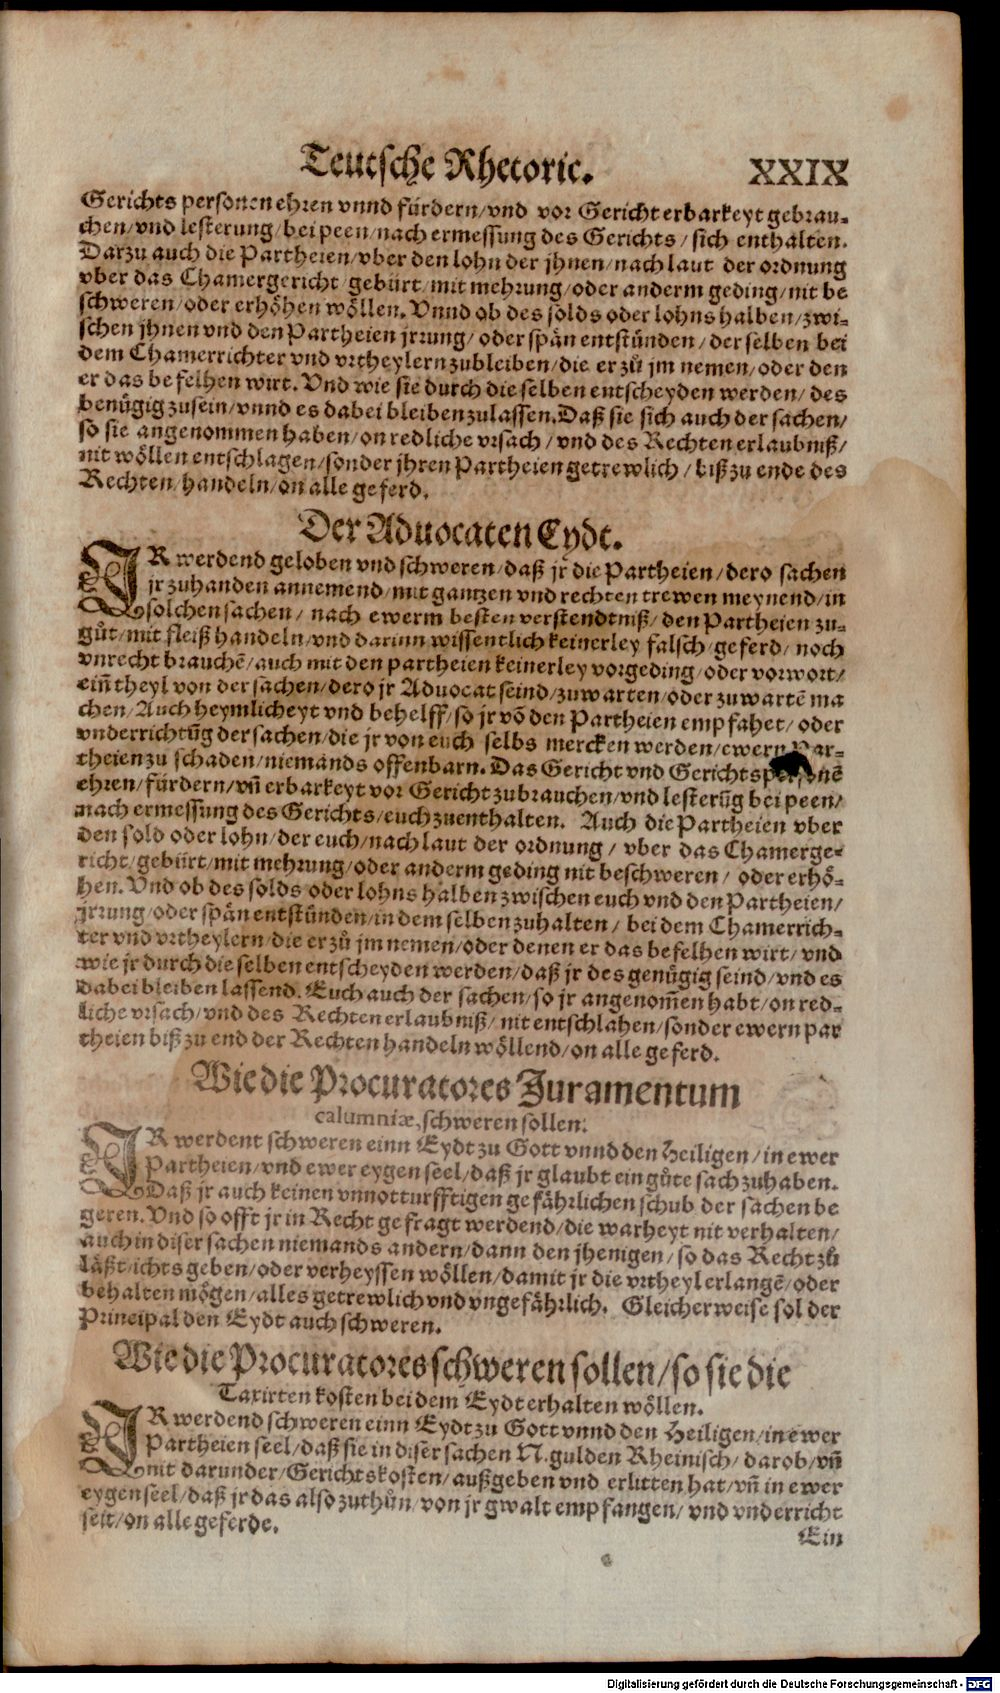 Teutsche Rhetoric. XXIX
Gerichts personen ehren vnnd fürdern/vnd vor Gericht erbarkeyt gebrau-
chen/vnd lesterung/bei peen/nach ermessung des Gerichts/sich enthalten.
Darzu auch die Partheien/vber den lohn der jhnen/nach laut der ordnung
vber das Chamergericht/gebürt/mit mehrung/oder anderm geding/nit be
schweren/oder erhöhen wöllen. Vnnd ob des solds oder lohns halben/zwi-
schen jhnen vnd den Partheien jrrung/oder spän entstünden/der selben bei
dem Chamerrichter vnd vrtheylern zubleiben/die er zů jm nemen/oder den
er das befelhen wirt. Vnd wie sie durch die selben entscheyden werden/des
benügig zusein/vnnd es dabei bleiben zulassen. Daß sie sich auch der sachen/
so sie angenommen haben/on redliche vrsach/vnd des Rechten erlaubniß/
nit wöllen entschlagen/sonder jhren Partheien getrewlich/biß zu ende des
Rechten/handeln/on alle geferd.
Der Aduocaten Eydt.
IR werdend geloben vnd schweren/daß jr die Partheien/dero sachen
jr zuhanden annemend/mit gantzen vnd rechten trewen meynend/in
solchen sachen/nach ewerm besten verstendtniß/den Partheien zu-
gůt/mit fleiß handeln/vnd darinn wissentlich keinerley falsch/geferd/noch
vnrecht brauchē/auch mit den partheien keinerley vorgeding/oder vorwort/
ein̄ theyl von der sachen/dero jr Aduocat seind/zuwarten/oder zuwartē ma
chen/Auch heymlicheyt vnd behelff/so jr vō den Partheien empfahet/oder
vnderrichtūg der sachen/die jr von euch selbs mercken werden/ewern Par-
theien zu schaden/niemands offenbarn. Das Gericht vnd Gerichtspersonē
ehren/fürdern/vn̄ erbarkeyt vor Gericht zubrauchen/vnd lesterūg bei peen/
nach ermessung des Gerichts/euch zuenthalten. Auch die Partheien vber
den sold oder lohn/der euch/nach laut der ordnung/vber das Chamerge-
richt/gebürt/mit mehrung/oder anderm geding nit beschweren/oder erhö-
hen. Vnd ob des solds oder lohns halben zwischen euch vnd den Partheien/
jrrung/oder spän entstünden/in dem selben zuhalten/bei dem Chamerrich-
ter vnd vrtheylern/die er zů jm nemen/oder denen er das befelhen wirt/vnd
wie jr durch die selben entscheyden werden/daß jr des genügig seind/vnd es
dabei bleiben lassend. Euch auch der sachen/so jr angenom̄en habt/on red-
liche vrsach/vnd des Rechten erlaubniß/nit entschlahen/sonder ewern par
theien biß zu end der Rechten handeln wöllend/on alle geferd.
Wie die Procuratores Juramentum
calumniæ, schweren sollen.
IR werdent schweren einn Eydt zu Gott vnnd den Heiligen/in ewer
Partheien/vnd ewer eygen seel/daß jr glaubt ein gůte sach zuhaben.
Daß jr auch keinen vnnotturfftigen gefährlichen schub der sachen be
geren. Vnd so offt jr in Recht gefragt werdend/die warheyt nit verhalten/
auch in diser sachen niemands andern/dann den jhenigen/so das Recht zů
läßt/ichts geben/oder verheyssen wöllen/damit jr die vrtheyl erlangē/oder
behalten mögen/alles getrewlich vnd vngefährlich. Gleicher weise sol der
Principal den Eydt auch schweren.
Wie die Procuratores schweren sollen/so sie die
Taxirten kosten bei dem Eydt erhalten wöllen.
IR werdend schweren einn Eydt zu Gott vnnd den Heiligen/in ewer
Partheien seel/daß sie in diser sachen N. gulden Rheinisch/darob/vn̄
nit darunder/Gerichtskosten/außgeben vnd erlitten hat/vn̄ in ewer
eygen seel/daß jr das also zuthůn/von jr gwalt empfangen/vnd vnderricht
seit/on alle geferde.
Ein
Digitalisierung gefördert durch die Deutsche Forschungsgemeinschaft - DFG